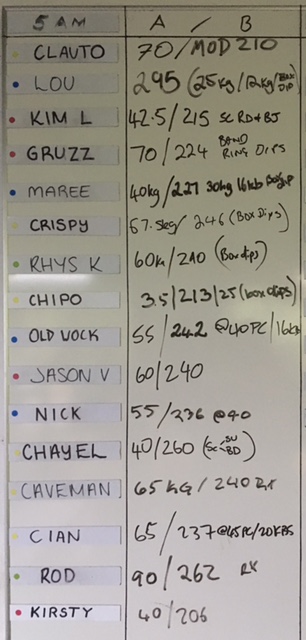 5 AM A / B
CLAUTO 70/MOD 210
LOU 295 (25kg/12kg/BOX DIP
KIM L 42.5/215 SC RD+BJ
GRUZZ 70/224 BAND RING DIPS
MAREE 40kg/227 30kg 16kb
CRISPY 67.5kg/246 (Box Dips)
RHYS K 60kg/240 (Box dips)
CHIPO 35/213/25 (box dips)
OLD VOCK 55/242 @40PC/16kb
JASON V 60/240
NICK 55/236 @40
CHAYEL 40/260 (SC SU BD)
CAVEMAN 65 KG / 240 RX
CIAN 65/237@45PC/20KBS
ROD 90/262 RX
KIRSTY 40/206